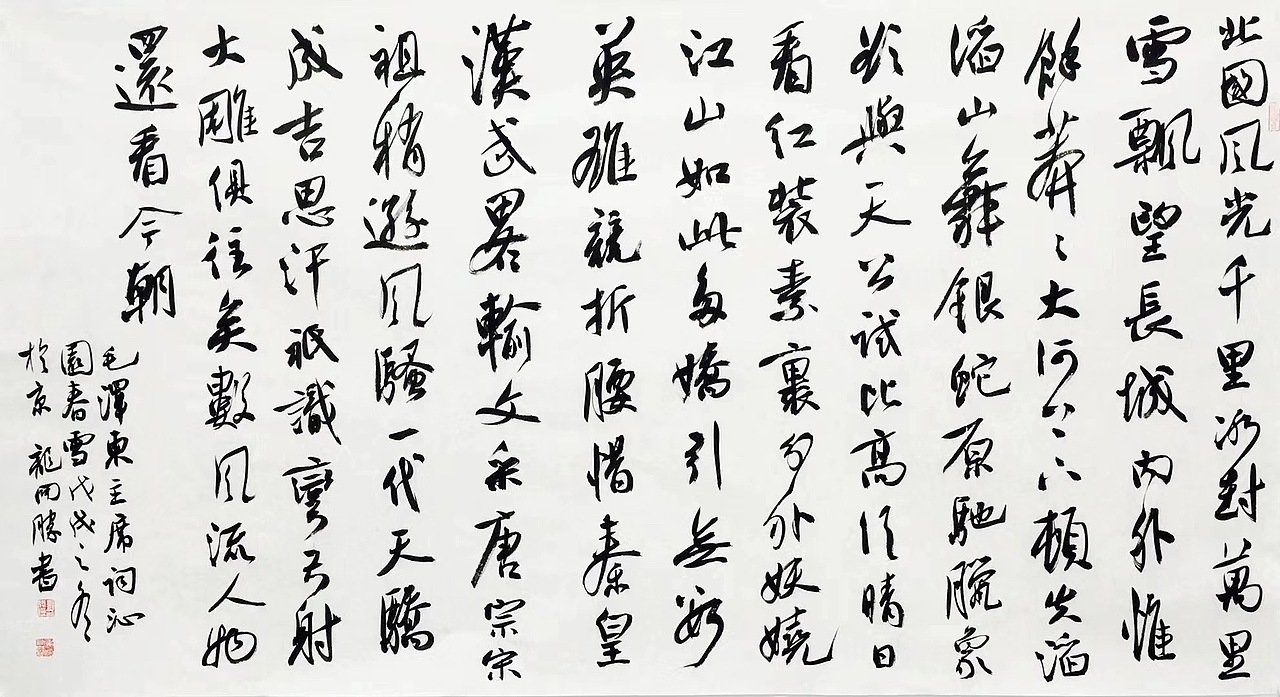 北國风光千里冰封萬里
雪飄望長城內外惟
餘莽々大河上下頓失滔
滔山舞銀蛇原馳臘象
欲與天公試比高須晴日
看红裝素裹分外妖嬈
江山如此多嬌引無數
英雄競折腰惜秦皇
漢武畧輸文采唐宗宋
祖稍遜风騷一代天驕
成吉思汗祇識彎弓射
大雕俱往矣數风流人物
還看今朝
毛澤東主席詞沁
園春雪戊戌之冬
於京龍開勝書